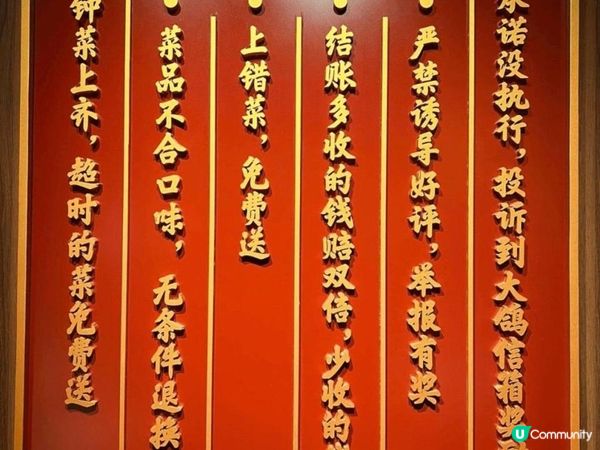 钟菜上齐，超时的菜免费送
菜品不合口味，无条件退换
上错菜，免费送
结账多收的钱赔双倍，少收的
严禁诱导好评，举报有奖
承诺没执行，投诉到大鸽信箱奖
U Community